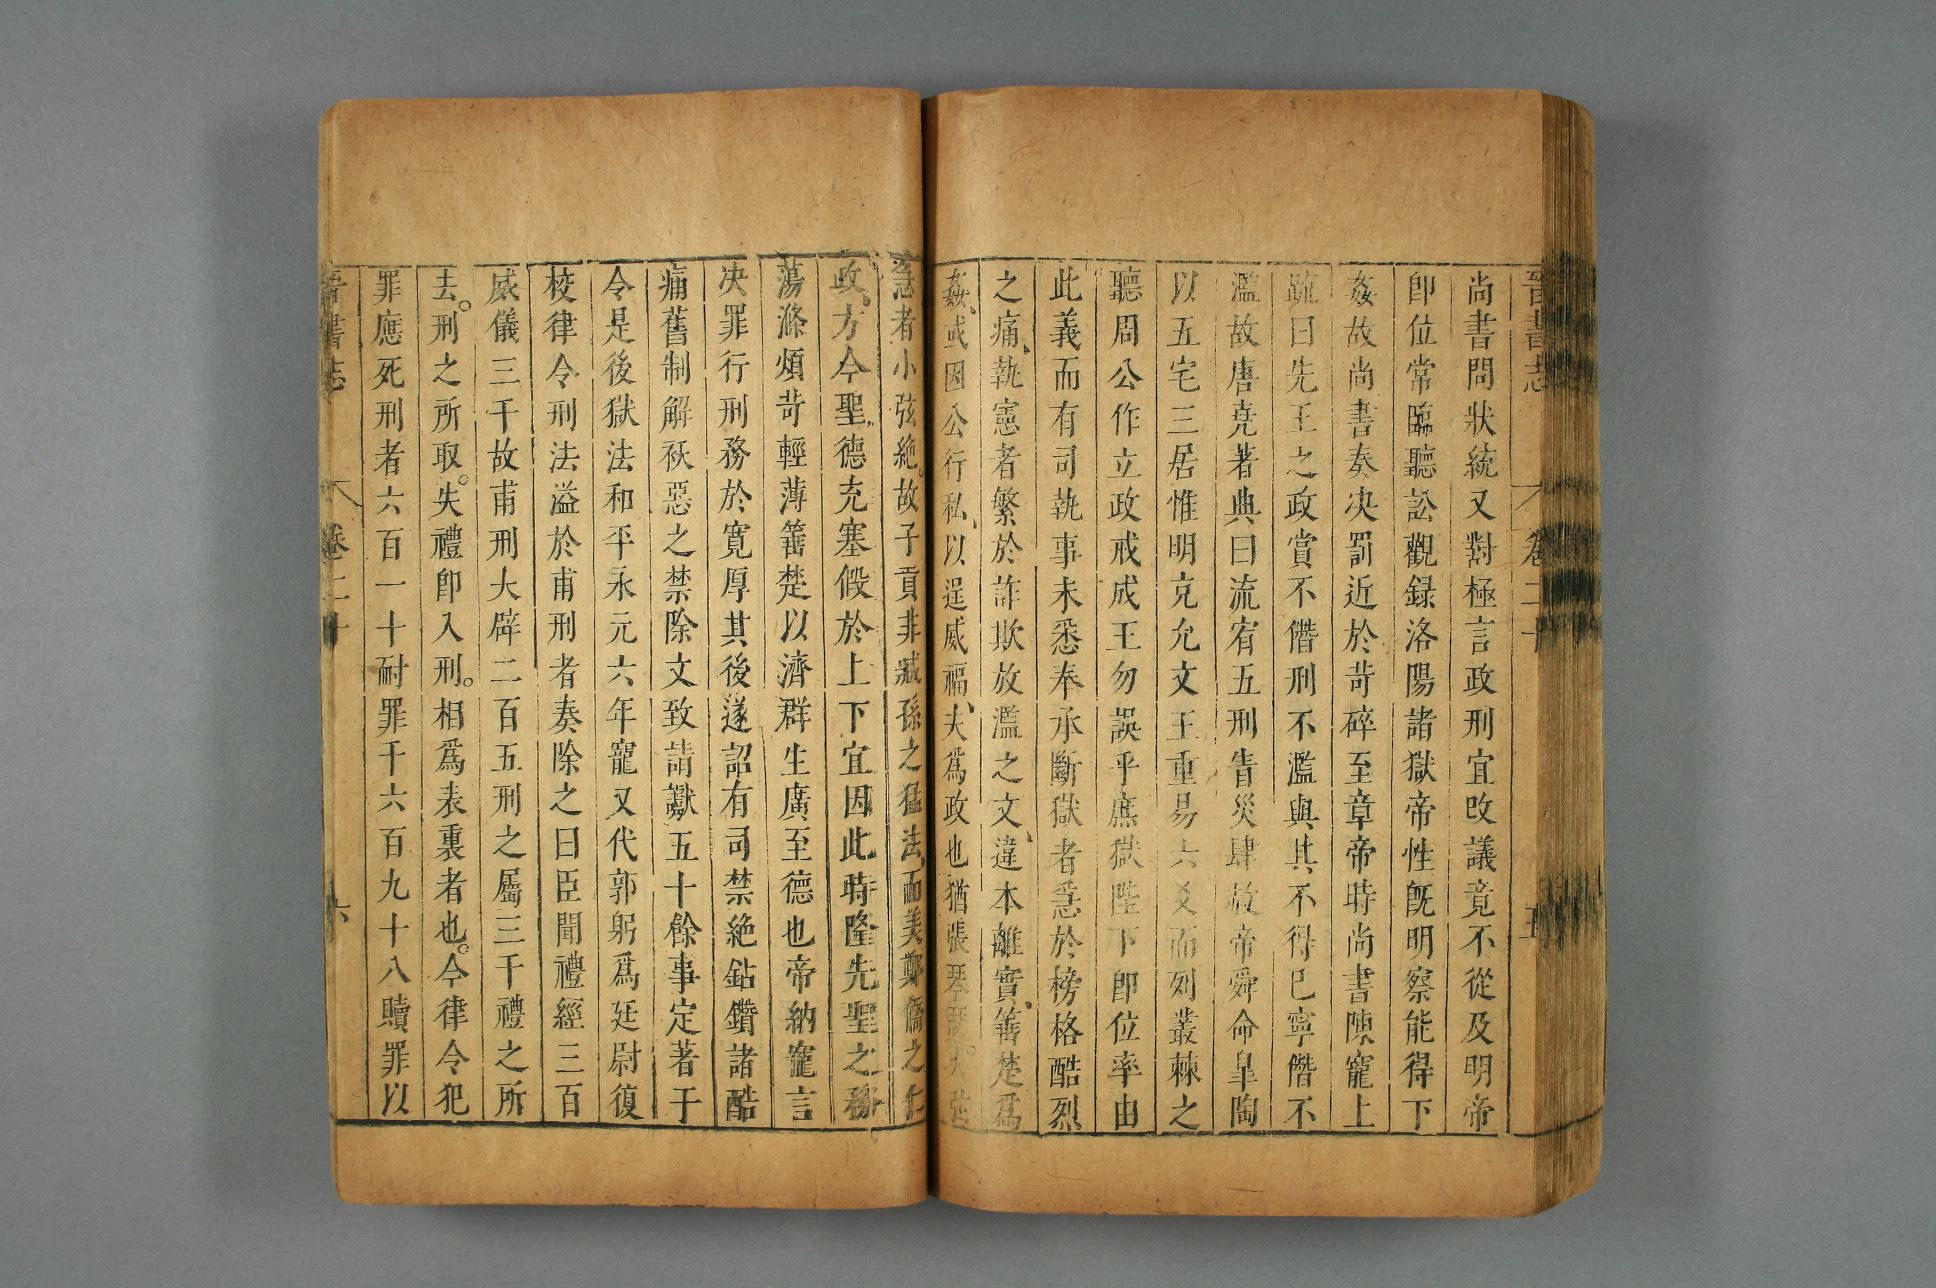 晉書志 卷二十 五
尚書問狀統又對極言政刑宜改議竟不從及明帝
卽位常臨聽訟觀録洛陽諸獄帝性旣明察能得下
姦故尚書奏决罰近於苛碎至章帝時尚書陳寵上
疏曰先王之政賞不僭刑不濫與其不得已寧僭不
濫故唐堯著典曰流宥五刑眚災肆赦帝舜命皐陶
以五宅三居惟明克允文王重易六爻而列叢棘之
聽周公作立政戒成王勿誤乎庶獄陛下卽位率由
此義而有司執事未悉奉承斷獄者急於榜格酷烈
之痛、執憲者繁於詐欺放濫之文、違本離實、箠楚爲
姦、或因公行私、以逞威福、夫爲政也猶張琴瑟。大弦
急者小弦絶。故子貢非臧孫之猛法、而美鄭僑之仁
政、方今聖德充塞假於上下宜因此時隆先聖之務
蕩滌煩苛輕薄箠楚以濟群生廣至德也帝納寵言
决罪行刑務於寛厚其後遂詔有司禁絶鉆鑽諸酷
痛舊制解祅惡之禁除文致請讞五十餘事定著于
令是後獄法和平永元六年寵又代郭躬爲廷尉復
校律令刑法溢於甫刑者奏除之曰臣聞禮經三百
威儀三千故甫刑大辟二百五刑之屬三千禮之所
去。刑之所取。失禮卽入刑。相爲表裏者也。今律令犯
罪應死刑者六百一十耐罪千六百九十八贖罪以
晉書志 卷二十 六